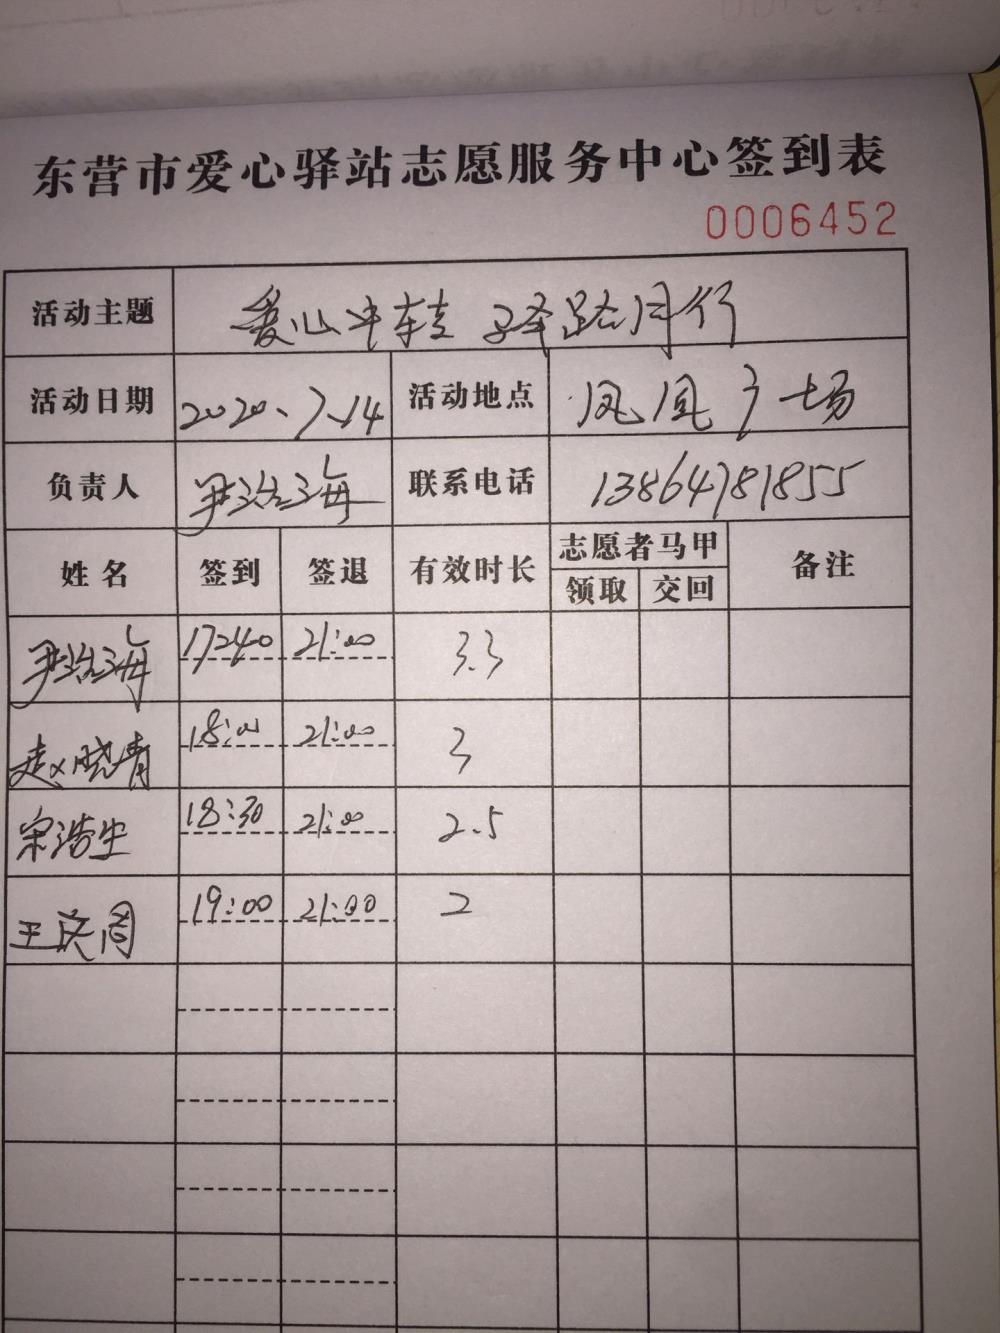 东营市爱心驿站志愿服务中心签到表
0006452
活动主题 爱心中转 驿路同行
活动日期 2020.7.14 活动地点 凤凰广场
负责人 尹治海 联系电话 13864781855
姓名 签到 签退 有效时长 志愿者马甲 备注
领取 交回
尹治海 17:40 21:00 3.3
赵晓青 18:00 21:00 3
宋浩生 18:30 21:00 2.5
王庆周 19:00 21:00 2